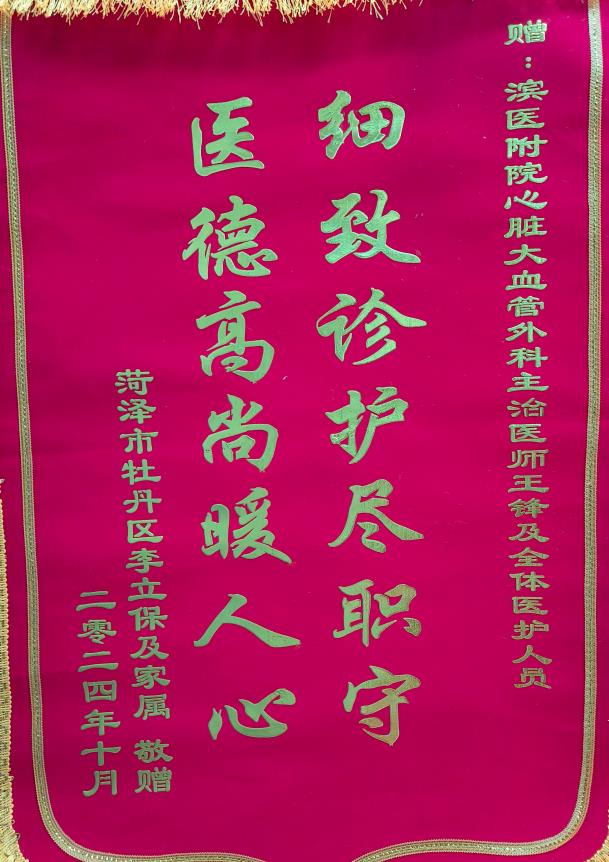 赠：滨医附院心脏大血管外科主治医师王锋及全体医护人员
细致诊护尽职守
医德高尚暖人心
菏泽市牡丹区李立保及家属 敬赠
二零二四年十月